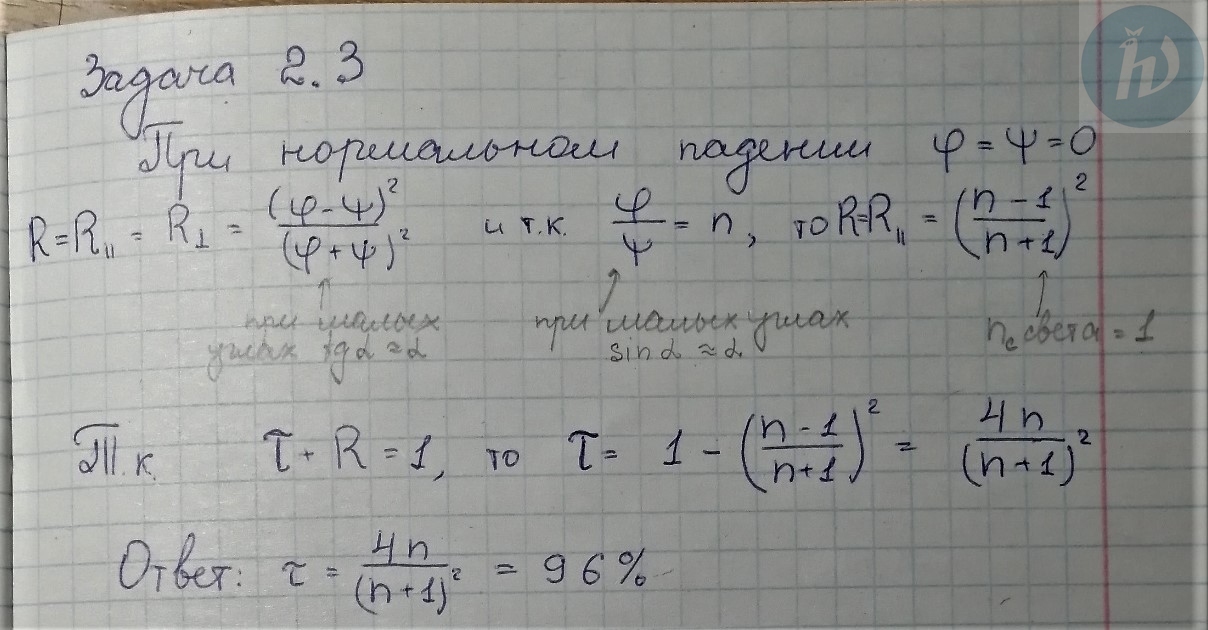 Задача 2.3
При нормальном падении φ = ψ = 0
R = R∥ = R⊥ = (φ - ψ)² / (φ + ψ)² и т.к. φ/ψ = n, то R=R∥ = ((n - 1)/(n + 1))²
при малых углах tg α ≈ α
при малых углах sin α ≈ α
n_c света = 1
Т.к. τ + R = 1, то τ = 1 - ((n - 1)/(n + 1))² = 4n/(n + 1)²
Ответ: τ = 4n/(n + 1)² = 96%